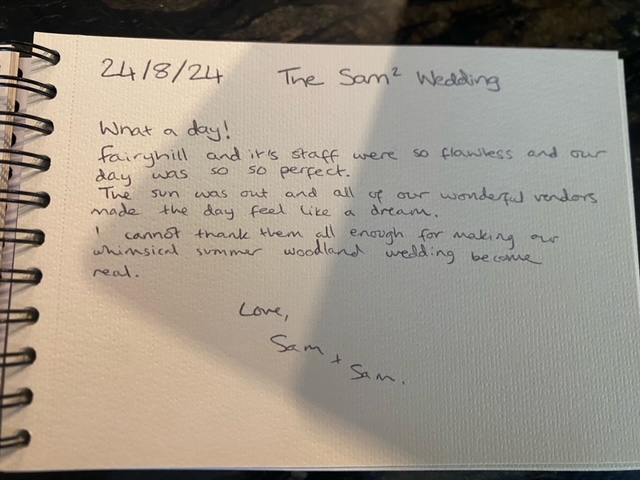 24/8/24 The Sam² Wedding
What a day!
Fairyhill and it's staff were so flawless and our
day was so so perfect.
The sun was out and all of our wonderful vendors
made the day feel like a dream.
I cannot thank them all enough for making our
whimsical summer woodland wedding become
real.
Love,
Sam + Sam.